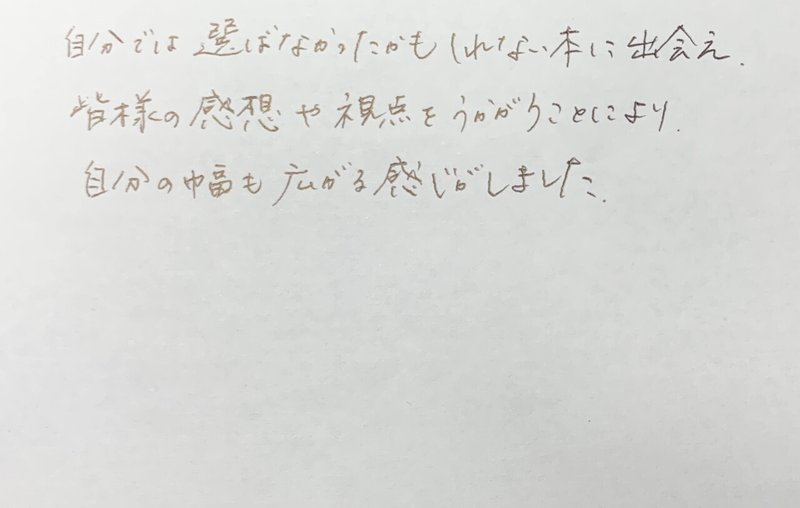 自分では選ばなかったかもしれない本に出会え、
皆様の感想や視点をうかがうことにより、
自分の幅も広がる感じがしました。